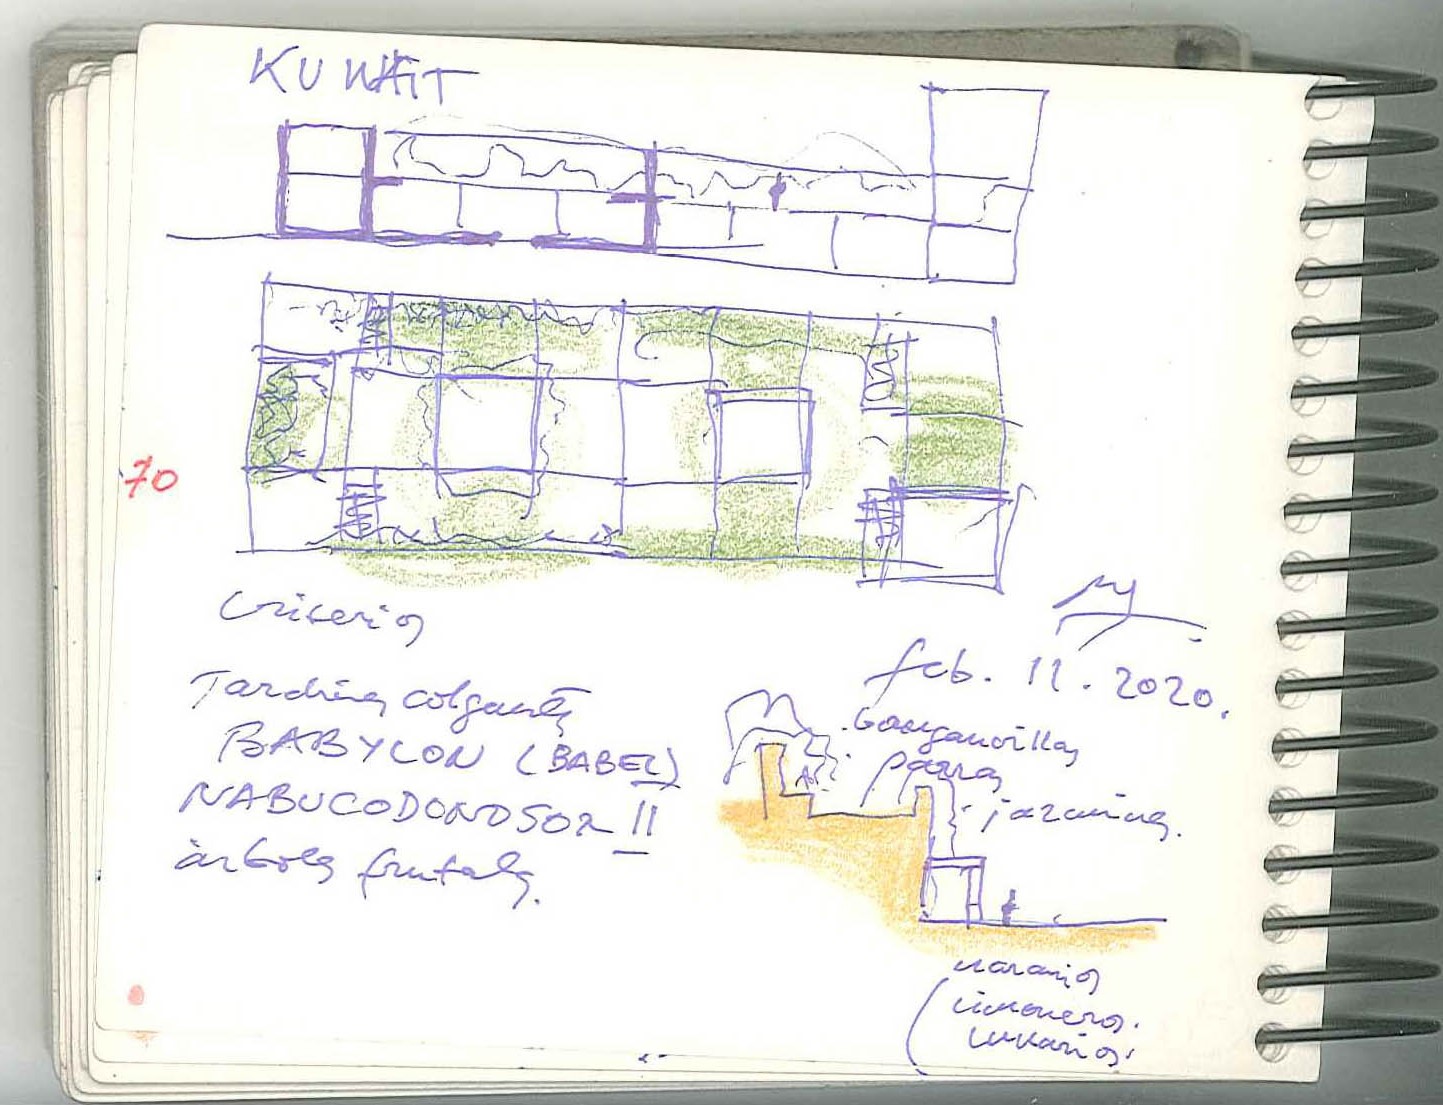 KUWAIT
70
criterios
Jardines colgantes
BABYLON (BABEL)
NABUCODONOSOR II
árboles frutales.
feb. 11. 2020.
bouganvillas
parras
jazmines.
naranjos
limoneros.